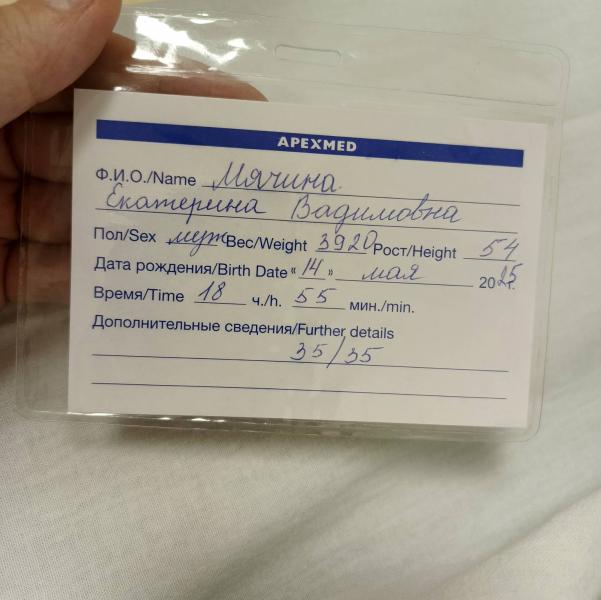 APEXMED
Ф.И.О./Name Мячина
Екатерина Вадимовна
Пол/Sex муж Вес/Weight 3920 Рост/Height 54
Дата рождения/Birth Date "14" мая 2025г.
Время/Time 18 ч./h. 55 мин./min.
Дополнительные сведения/Further details
35/35